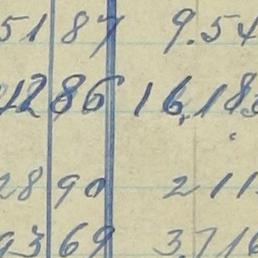 51 87 9.54
4286 16,183
2890 211
9369 3,716